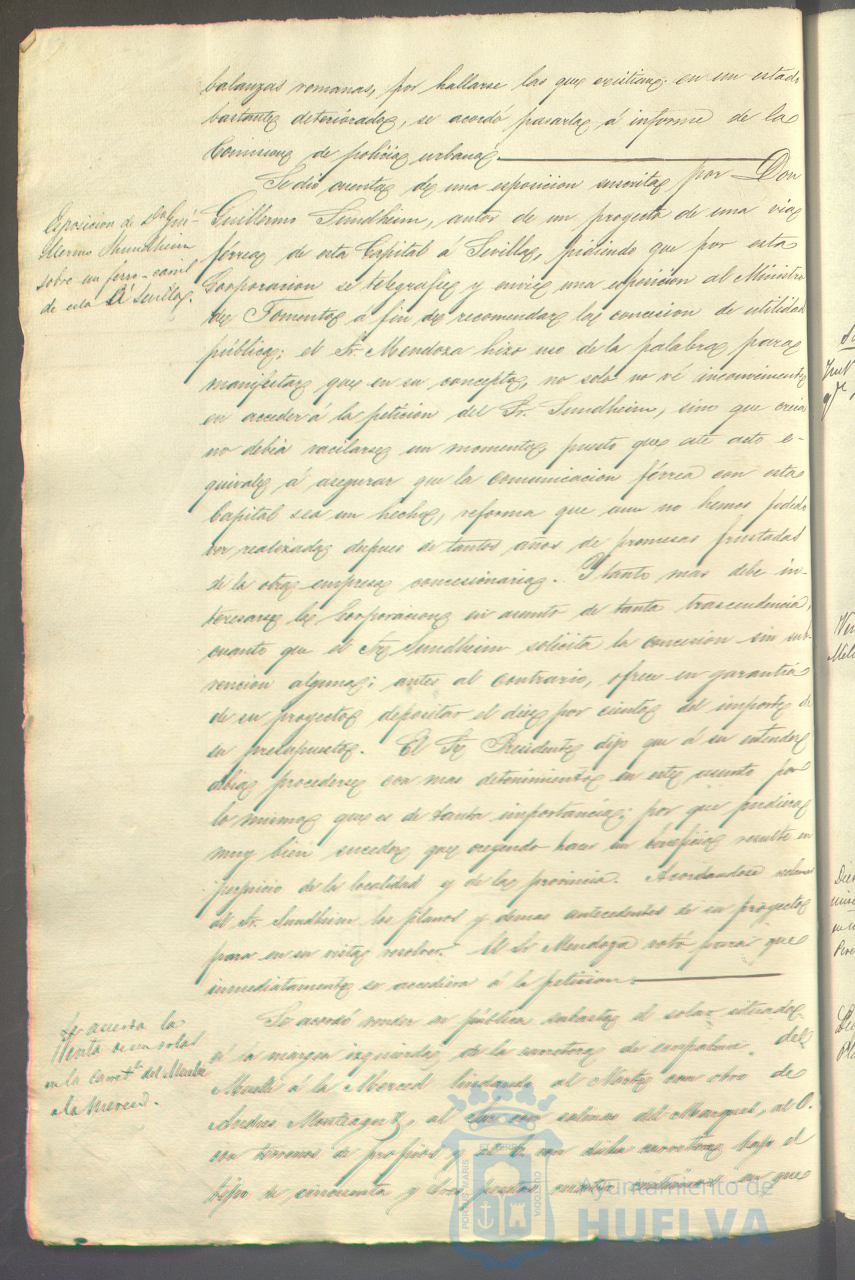 balanzas romanas, por hallarse las que existian en un estado
bastante deteriorado, se acordó pasarla á informe de la
Comision de policia urbana.
Se dió cuenta de una esposicion suscrita por Don
Exposicion de Dn Gui-
llermo Shundheim
sobre un ferro-carril
de esta á Sevilla.
Guillermo Sundheim, autor de un proyecto de una via
férrea de esta Capital á Sevilla, pidiendo que por esta
Corporacion se telegrafie y envie una esposicion al Ministro
de Fomento a fin de recomendar la concesion de utilidad
pública; el Sr. Mendoza hizo uso de la palabra para
manifestar que en su concepto, no solo no vé inconveniente
en acceder á la peticion del Sr. Sundheim, sino que creia
no debia vacilarse un momento, puesto que este acto e-
quivale á asegurar que la comunicacion férrea con esta
Capital sea un hecho, reforma que aun no hemos podido
ver realizada despues de tantos años de promesas frustadas
de la otra empresa concesionaria. Y tanto mas debe in-
teresarse la Corporacion en asunto de tanta trascendencia,
cuanto que el Sr Sundheim solicita la concesion sin sub-
vencion alguna; antes al contrario, ofrece en garantia
de su proyecto depositar el diez por ciento del importe de
su presupuesto. El Sr Presidente dijo que á su entender
debia procederse con mas detenimiento en este asunto por
lo mismo que es de tanta importancia; por que pudiera
muy bien suceder que creyendo hacer un beneficio resulte en
perjuicio de la localidad y de la provincia. Acordandose reclamar
al Sr. Sundheim los planos y demas antecedentes de su proyecto
para en su vista resolver. El Sr Mendoza votó para que
inmediatamente se accediera á la peticion.
Se acuerda la
Venta de un solar
en la carrta. del Muelle
a la Merced.
Se acordó vender en pública subasta el solar situado
á la margen izquierda de la carretera de empalme del
Muelle á la Merced lindando al Norte con otro de
Andres Monteagut, al Sur con salinas del Marques, al O.
con terrenos de propios y al E. con dicha carretera bajo el
tipo de cincuenta y dos pesetas en que
PORTUS MARIS
ET TERRE
CUSTODIA
Ayuntamiento de
HUELVA